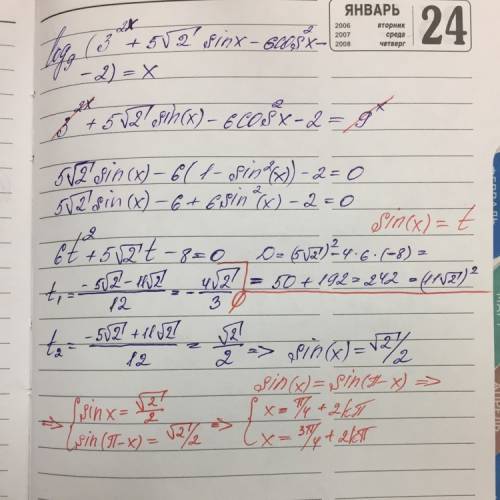 ЯНВАРЬ
2006 вторник
2007 среда
2008 четверг
24
log₉ (3^2x + 5√2 sinx - 6cos²x -
- 2) = x
3^2x + 5√2 sin(x) - 6cos²x - 2 = 9^x
5√2 sin(x) - 6(1 - sin²(x)) - 2 = 0
5√2 sin(x) - 6 + 6sin²(x) - 2 = 0
sin(x) = t
6t² + 5√2 t - 8 = 0 D = (5√2)² - 4·6·(-8) =
t₁ = (-5√2 - 11√2)/12 = - 4√2/3 ∅ = 50 + 192 = 242 = (11√2)²
t₂ = (-5√2 + 11√2)/12 = √2/2 => sin(x) = √2/2
sin(x) = sin(π - x) =>
=> { sinx = √2/2 => { x = π/4 + 2kπ
sin(π-x) = √2/2 x = 3π/4 + 2kπ